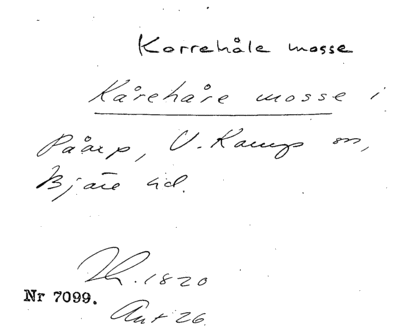 Korrehåle mosse
Kårehåre mosse i
Påarp, V. Karup sn,
Bjäre hd.
Ant 26
Nr 7099.